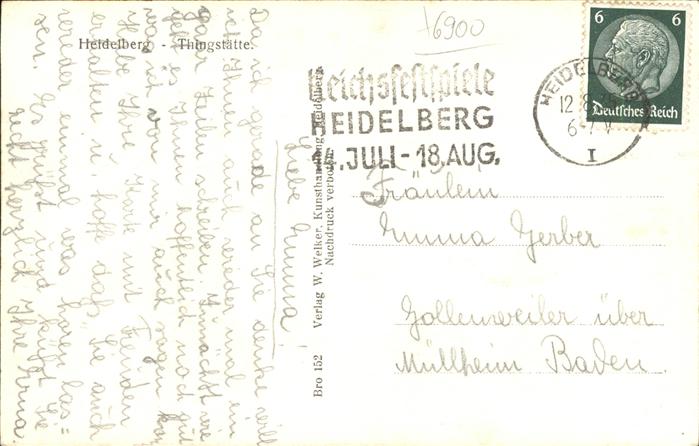 +6900
Heidelberg - Thingstätte.
6 6
Deutsches Reich
HEIDELBERG
12.8.
6-7 V
I
Reichsfestspiele
HEIDELBERG
14. JULI - 18. AUG.
Fräulein
Emma Gerber
Gallenweiler über
Müllheim Baden.
Bro 152 Verlag W. Welker, Kunsthandlung, Heidelberg.
Nachdruck verboten.
Liebe Emma!
Da ich gerade an Sie denke will
ich Ihnen auch wieder mal ein
paar Zeilen schreiben. Zunächst wie
geht es Ihnen hoffentlich noch gut
was ich von mir auch sagen kann.
Habe Ihre Karte mit Freuden
erhalten u. hoffe daß Sie auch
wieder einmal was hören las=
sen. Es grüßt und küßt Sie
recht herzlich Ihre Erna.